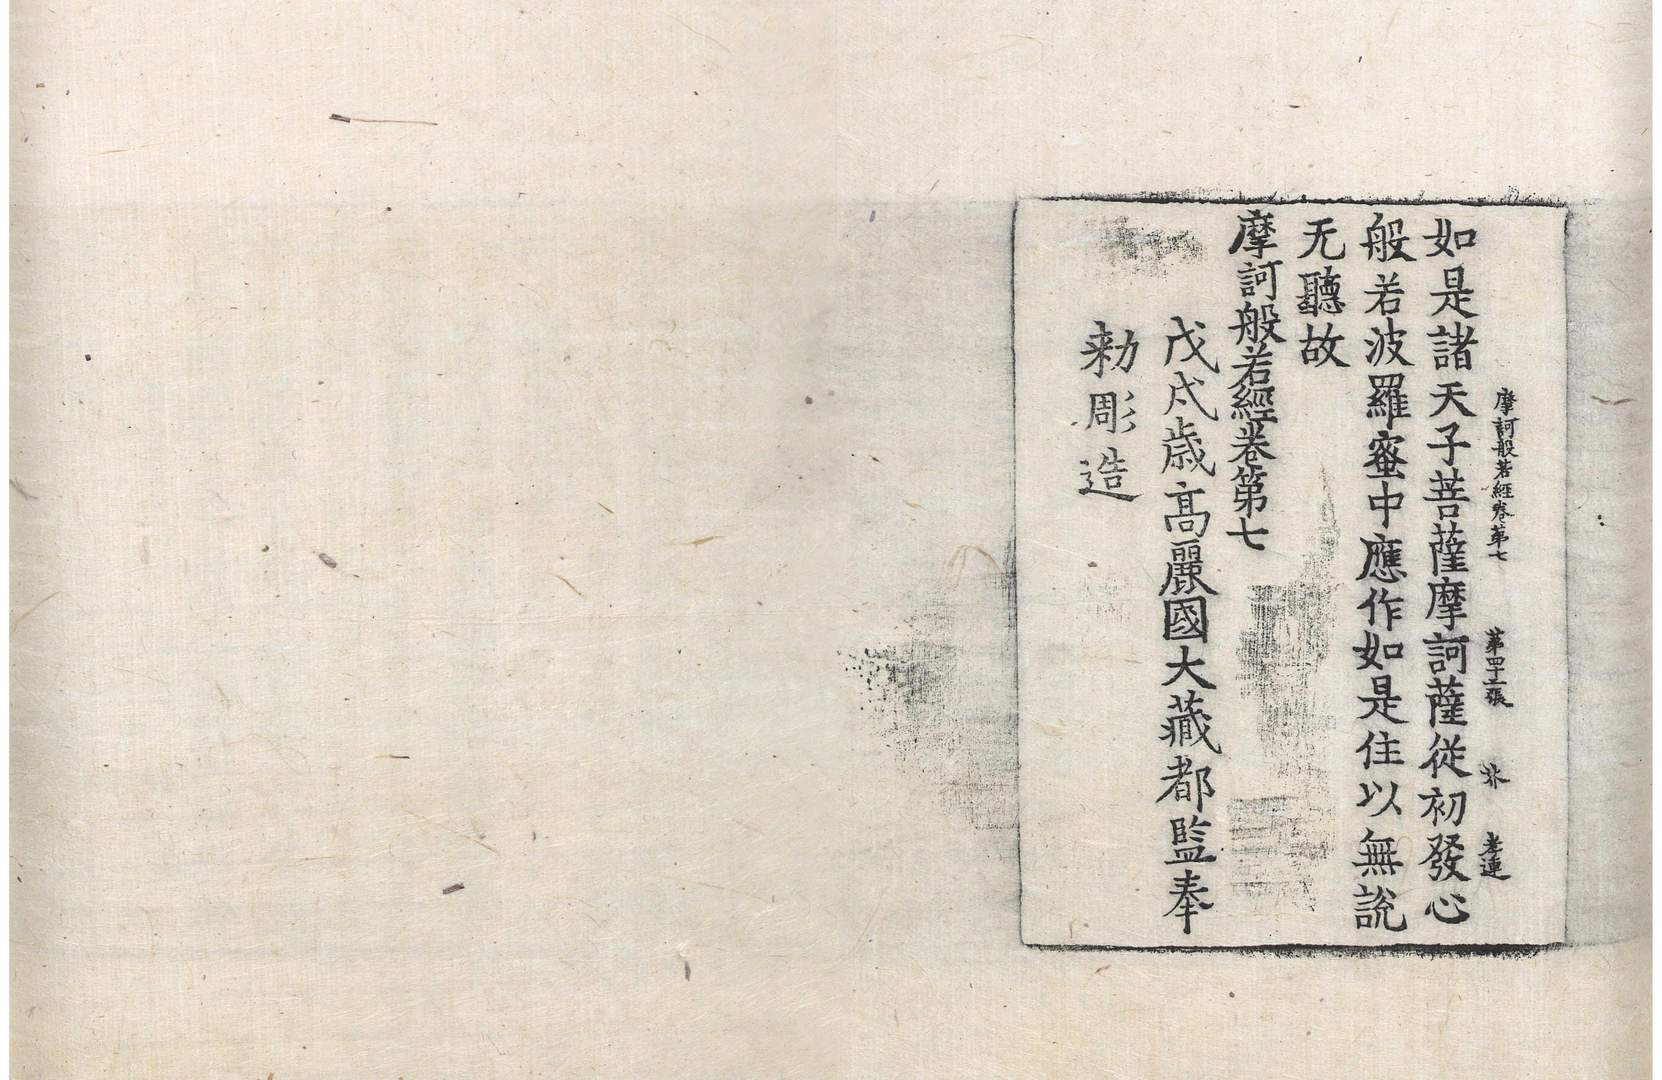 摩訶般若經卷第七 第四十二張 芥 孝連
如是諸天子菩薩摩訶薩從初發心
般若波羅蜜中應作如是住以無說
无聽故
摩訶般若經卷第七
戊戌歲高麗國大藏都監奉
勑彫造